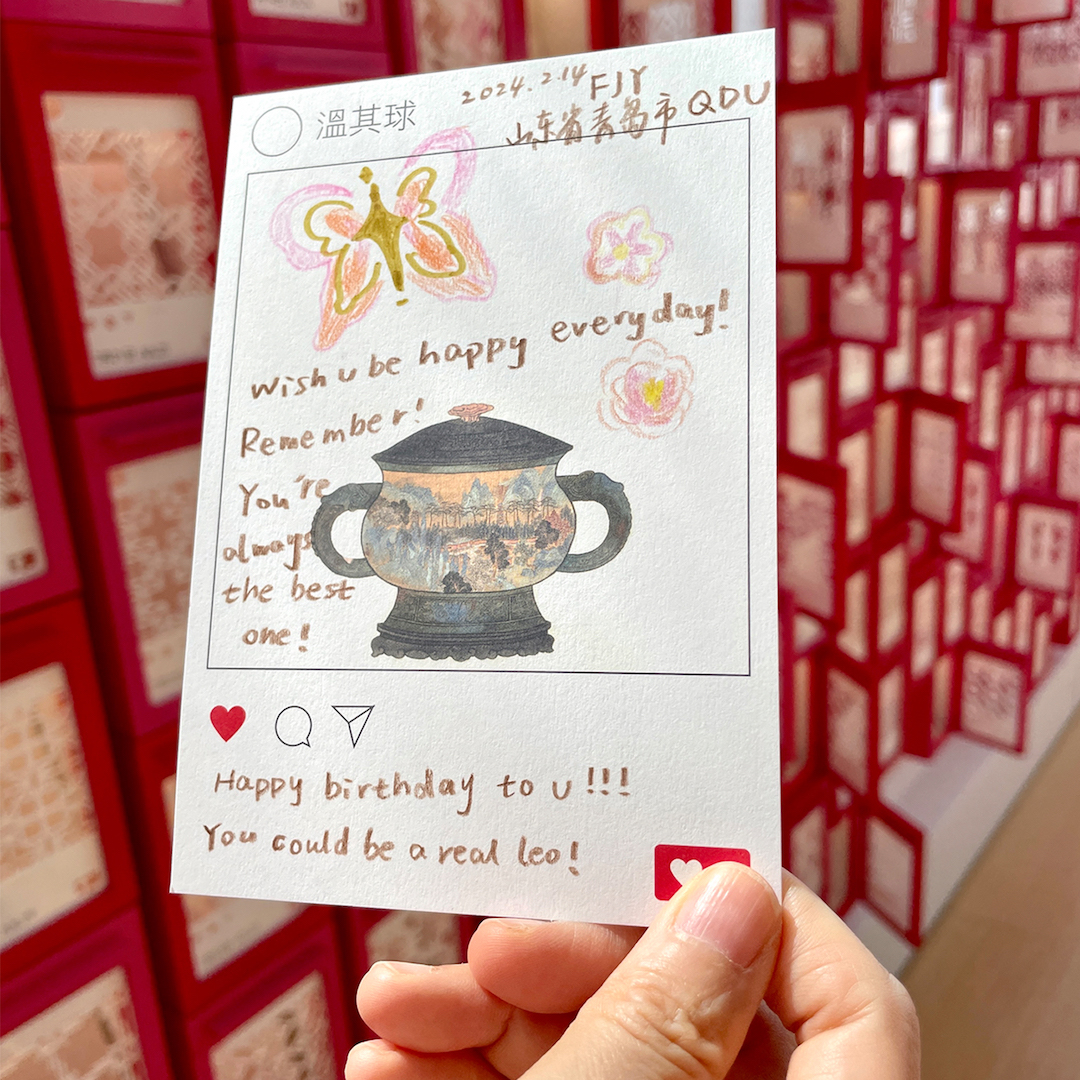 2024.2.14 FJY
山东省青岛市 QDU
溫其球
Wish u be happy everyday!
Remember!
You're
always
the best
one!
Happy birthday to u!!!
You could be a real leo!